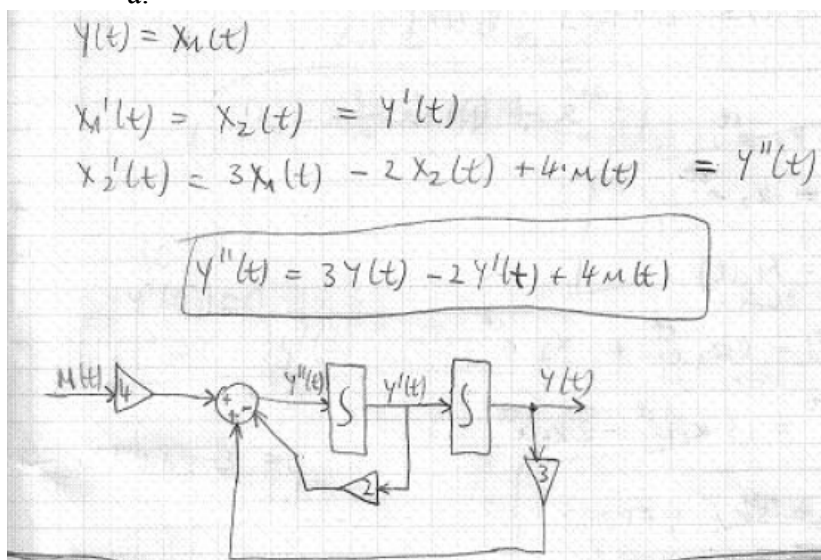 a.
y(t) = x₁(t)
x₁'(t) = x₂(t) = y'(t)
x₂'(t) = 3x₁(t) - 2x₂(t) + 4·u(t) = y''(t)
y''(t) = 3y(t) - 2y'(t) + 4u(t)
u(t) 4 + + - y''(t) ∫ y'(t) ∫ y(t)
2 3